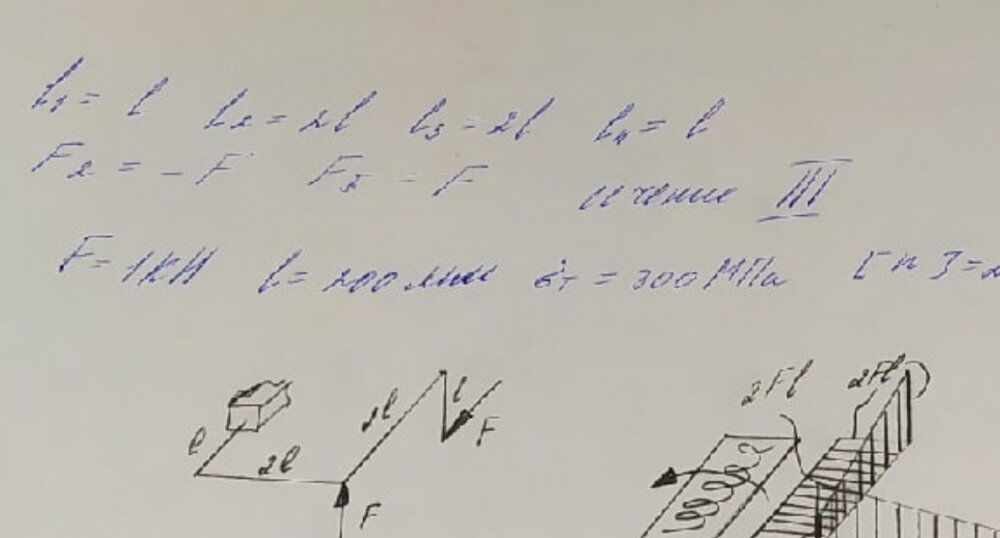 l₁ = l l₂ = 2l l₃ = 2l l₄ = l
F₂ = -F F₅ = F сечение III
F = 1кН l = 200 мм σт = 300 МПа [n] = 2
2Fl 2Fl
l 2l 2l l F
F